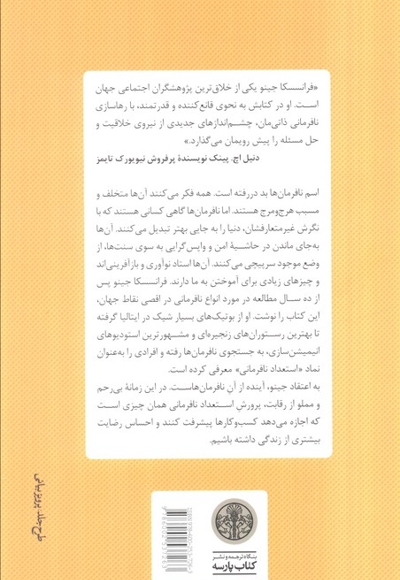 «فرانسسکا جینو یکی از خلاق‌ترین پژوهشگران اجتماعی جهان
است. او در کتابش به نحوی قانع‌کننده و قدرتمند، با رهاسازی
نافرمانی ذاتی‌مان، چشم‌اندازهای جدیدی از نیروی خلاقیت و
حل مسئله را پیش رویمان می‌گذارد.»
دنیل اچ. پینک نویسندهٔ پرفروش نیویورک تایمز
اسم نافرمان‌ها بد دررفته است. همه فکر می‌کنند آن‌ها متخلف و
مسبب هرج‌ومرج هستند. اما نافرمان‌ها گاهی کسانی هستند که با
نگرش غیرمتعارفشان، دنیا را به جایی بهتر تبدیل می‌کنند. آن‌ها
به‌جای ماندن در حاشیهٔ امن و واپس‌گرایی به سوی سنت‌ها، از
وضع موجود سرپیچی می‌کنند. آن‌ها استاد نوآوری و بازآفرینی‌اند
و چیزهای زیادی برای آموختن به ما دارند. فرانسسکا جینو پس
از ده سال مطالعه در مورد انواع نافرمانی در اقصی نقاط جهان،
این کتاب را نوشت. او از بوتیک‌های بسیار شیک در ایتالیا گرفته
تا بهترین رستوران‌های زنجیره‌ای و مشهورترین استودیوهای
انیمیشن‌سازی، به جستجوی نافرمان‌ها رفته و افرادی را به‌عنوان
نماد «استعداد نافرمانی» معرفی کرده است.
به اعتقاد جینو، آینده از آنِ نافرمان‌هاست. در این زمانهٔ بی‌رحم
و مملو از رقابت، پرورش استعداد نافرمانی همان چیزی است
که اجازه می‌دهد کسب‌وکارها پیشرفت کنند و احساس رضایت
بیشتری از زندگی داشته باشیم.
طرح جلد: پرویز بیانی
بنگاه ترجمه و نشر
کتاب پارسه